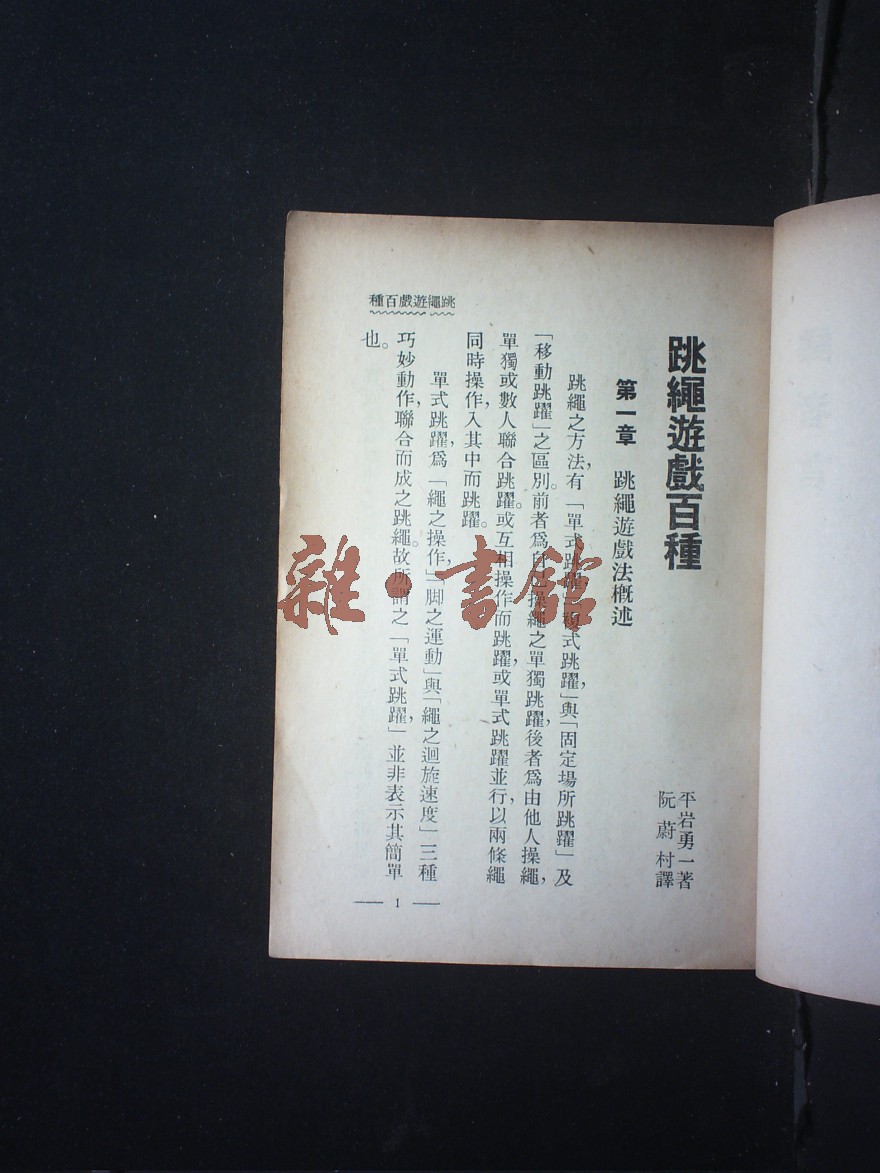 跳繩遊戲百種
平岩勇一著
阮蔚村譯
第一章　跳繩遊戲法概述
跳繩之方法，有「單式跳躍」「複式跳躍，」與「固定場所跳躍」及
「移動跳躍」之區別。前者爲自己操繩之單獨跳躍，後者爲由他人操繩，
單獨或數人聯合跳躍。或互相操作而跳躍，或單式跳躍並行，以兩條繩
同時操作，入其中而跳躍。
單式跳躍，爲「繩之操作，」「脚之運動」與「繩之迴旋速度」三種
巧妙動作，聯合而成之跳繩。故所謂之「單式跳躍，」並非表示其簡單
也。
跳繩遊戲百種
1
雜·書館